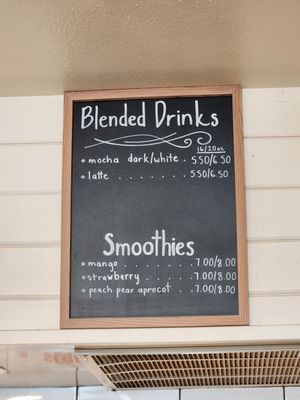 Blended Drinks
16/20oz
mocha dark/white . 5.50/6.50
latte . . . . . . . 5.50/6.50
Smoothies
mango . . . . . . . 7.00/8.00
strawberry . . . . . 7.00/8.00
peach pear aprocot . . 7.00/8.00